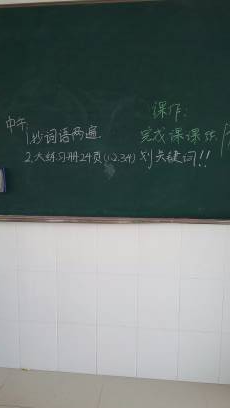 中午:
1.抄词语两遍
2.大练习册24页(1.2.3.4)划关键词!!
课作:
完成课课练